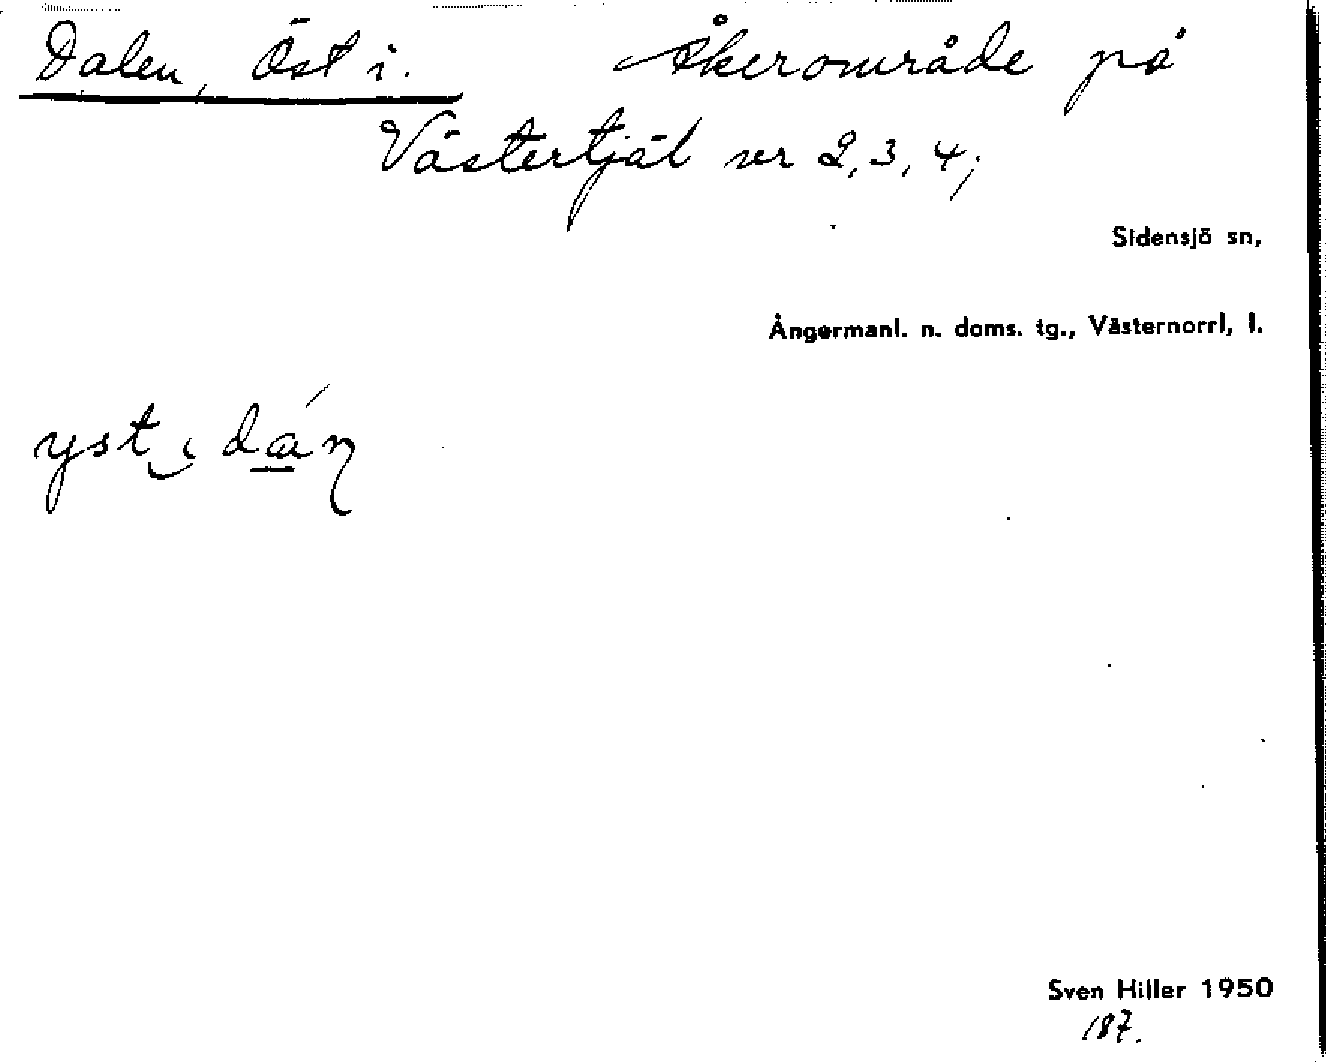 Dalen, Öst i. Åkerområde på
Västertjäl nr 2, 3, 4;
Sidensjö sn,
Ångermanl. n. doms. tg., Västernorrl, l.
yst i
Sven Hiller 1950
187.